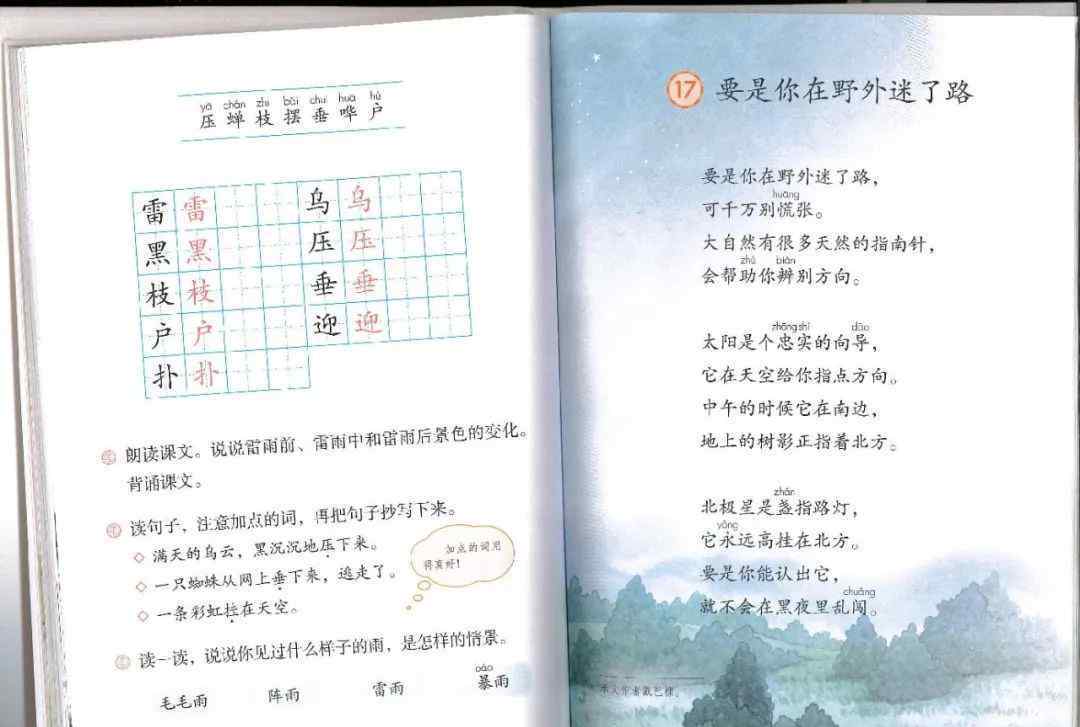 yā chán zhī bǎi chuí huā hù
压 蝉 枝 摆 垂 哗 户
雷 雷 乌 乌
黑 黑 压 压
枝 枝 垂 垂
户 户 迎 迎
扑 扑
朗读课文。说说雷雨前、雷雨中和雷雨后景色的变化。
背诵课文。
读句子，注意加点的词，再把句子抄写下来。
◇ 满天的乌云，黑沉沉地压下来。
◇ 一只蜘蛛从网上垂下来，逃走了。
◇ 一条彩虹挂在天空。
加点的词用
得真好！
读一读，说说你见过什么样子的雨，是怎样的情景。
bào
毛毛雨 阵雨 雷雨 暴雨
17 要是你在野外迷了路
要是你在野外迷了路，
huāng
可千万别慌张。
大自然有很多天然的指南针，
zhù biàn
会帮助你辨别方向。
zhōng shí dǎo
太阳是个忠实的向导，
它在天空给你指点方向。
中午的时候它在南边，
地上的树影正指着北方。
zhǎn
北极星是盏指路灯，
yǒng
它永远高挂在北方。
要是你能认出它，
chuǎng
就不会在黑夜里乱闯。
本文作者戴巴棣。